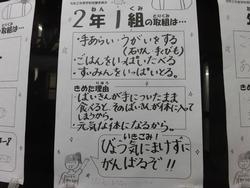 2年1組の取組は…
・手あらい うがいをする
(石けん 手ぴか)
・ごはんをいっぱいたべる
・すいみんをいっぱいとる。
きめた理由
・ばいきんが手についたまま
食べると、そのばいきんが体に入って
しまうから。
・元気な体になるから。
いきごみ!
びょう気にまけずに
がんばるぞ!!